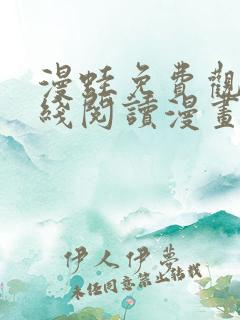 漫蛙免費觀
綫閱讀漫畫
伊人伊夢
未经同意禁止转载